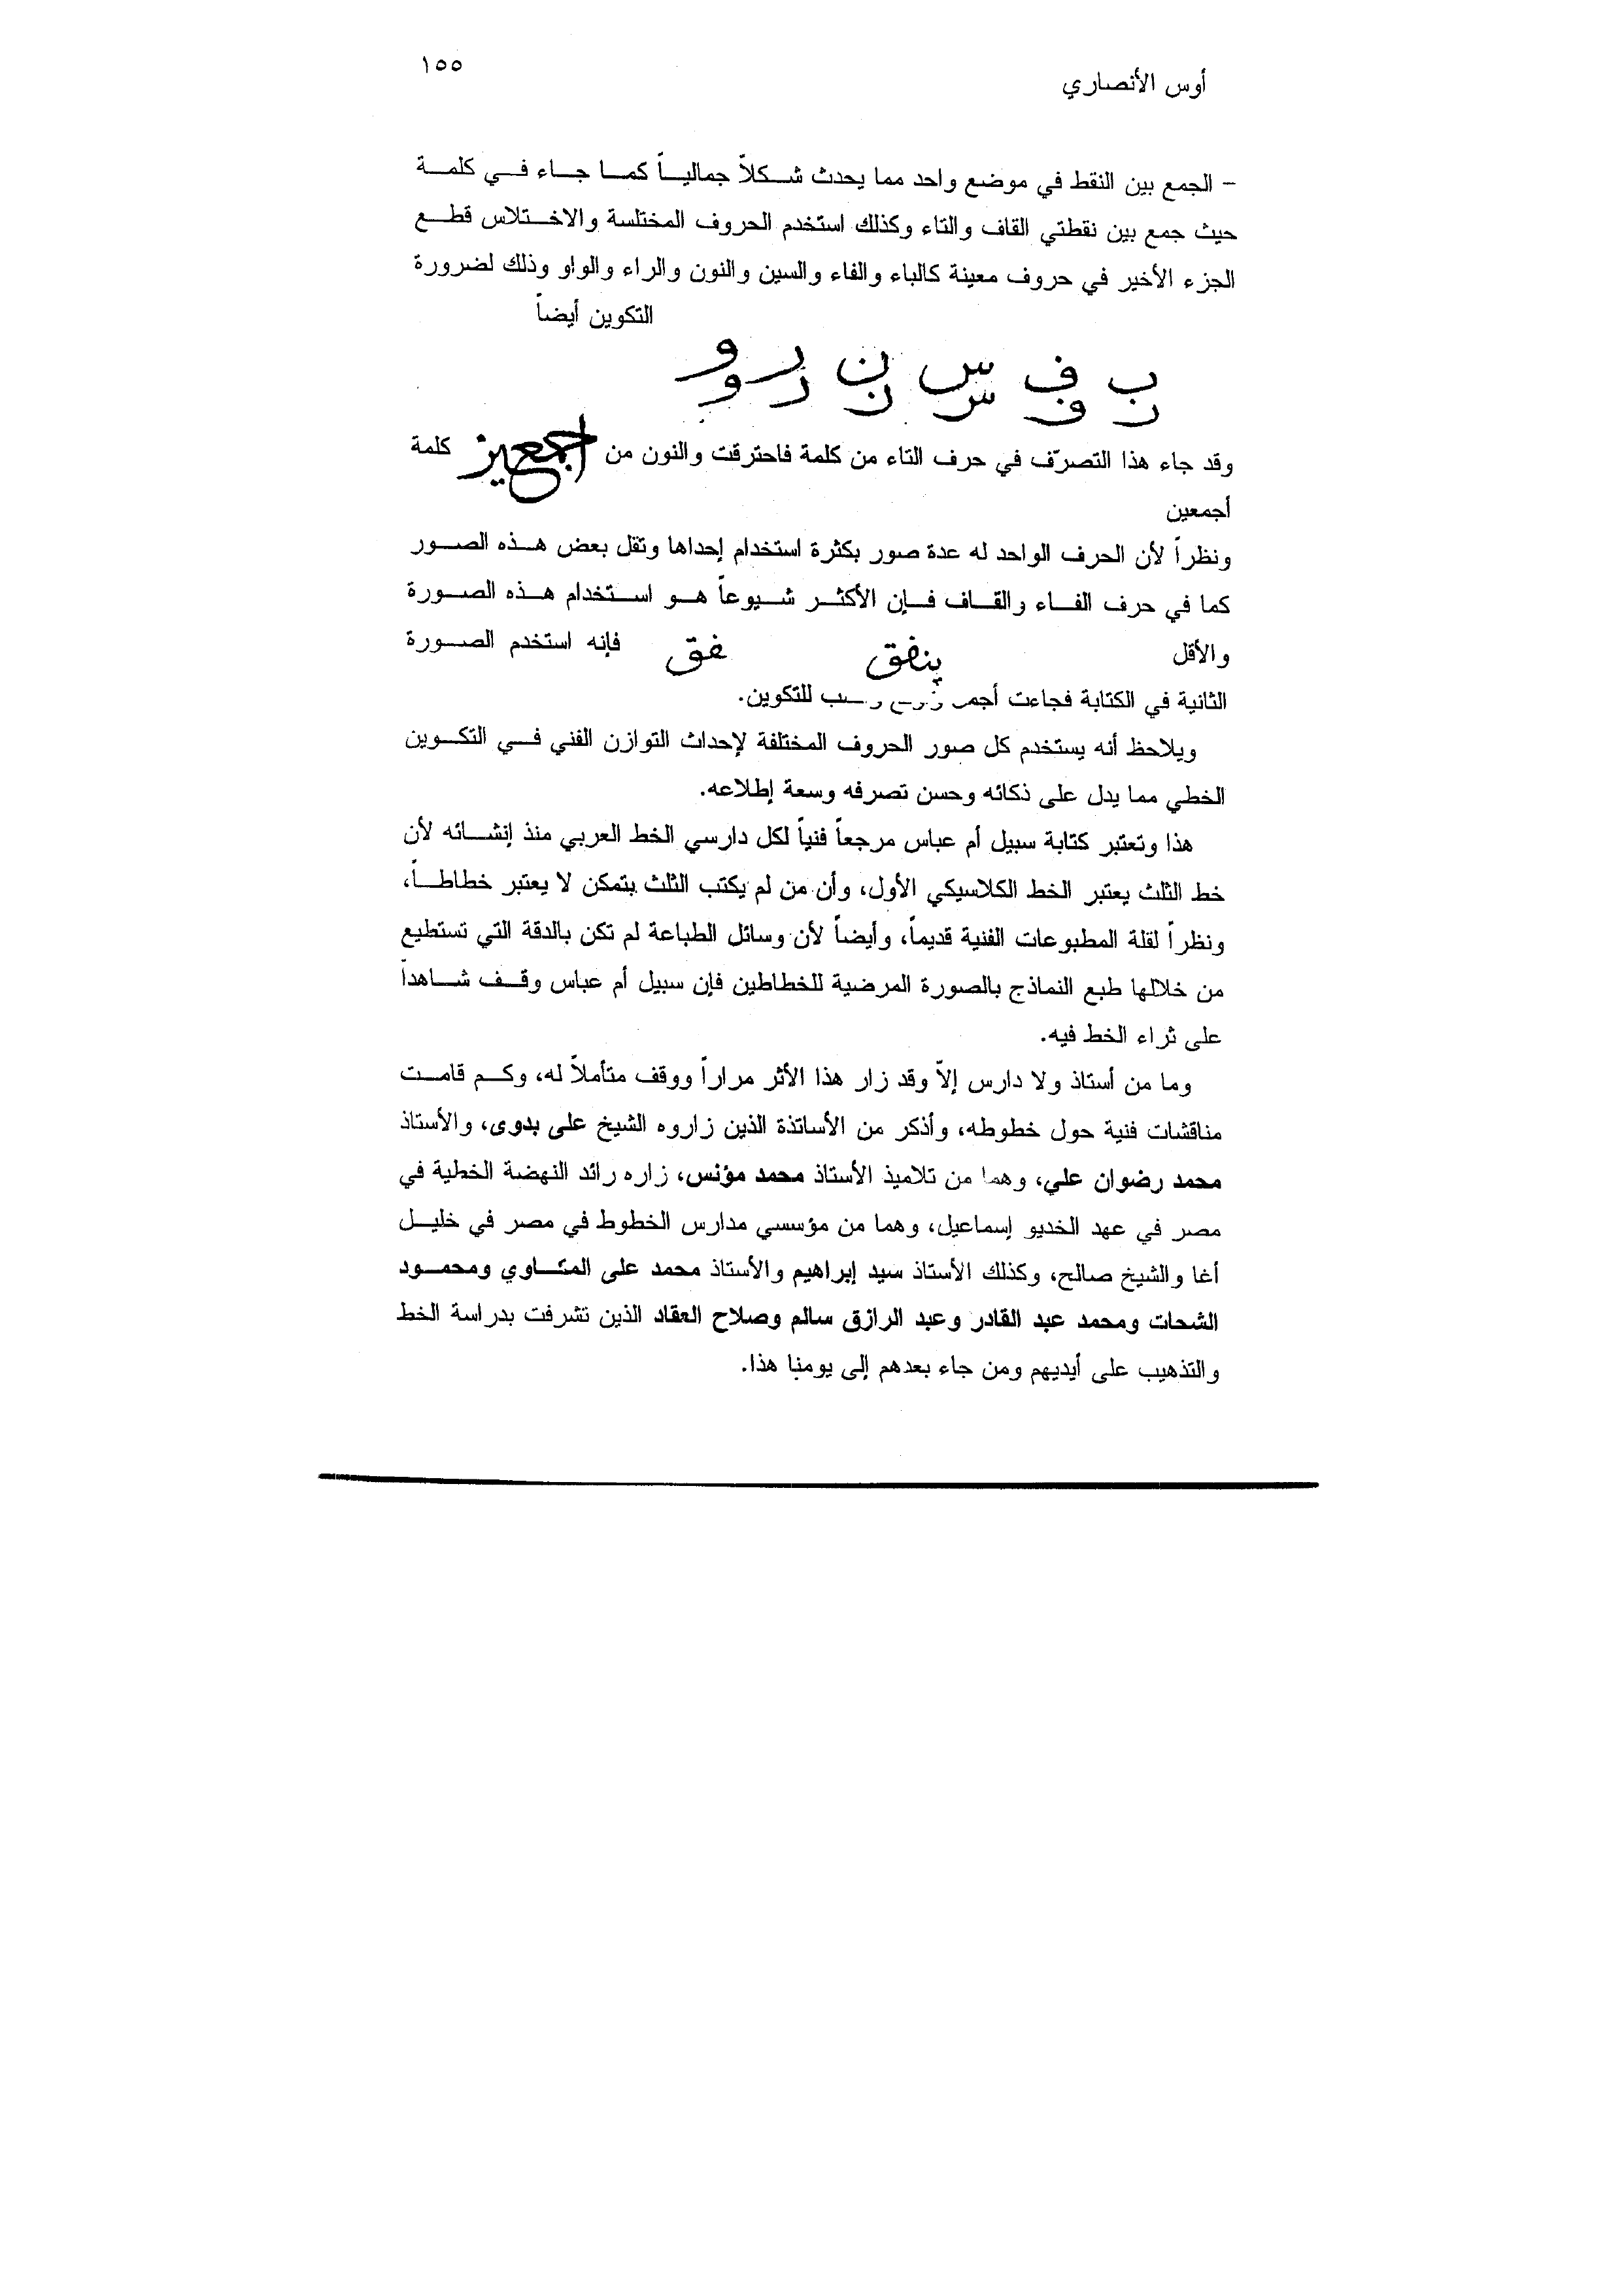 ١٥٥
أوس الأنصاري
– الجمع بين النقط في موضع واحد مما يحدث شكلاً جمالياً كما جاء في كلمة
حيث جمع بين نقطتي القاف والتاء وكذلك استخدم الحروف المختلسة والاختلاس قطع
الجزء الأخير في حروف معينة كالباء والفاء والسين والنون والراء والواو وذلك لضرورة
التكوين أيضاً
ب ف س ن ر و
وقد جاء هذا التصرّف في حرف التاء من كلمة فاحترقت والنون من اجمعين كلمة
أجمعين
ونظراً لأن الحرف الواحد له عدة صور بكثرة استخدام إحداها وتقل بعض هذه الصور
كما في حرف الفاء والقاف فإن الأكثر شيوعاً هو استخدام هذه الصورة
والأقل ينفق فإنه استخدم الصورة
الثانية في الكتابة فجاءت للتكوين.
ويلاحظ أنه يستخدم كل صور الحروف المختلفة لإحداث التوازن الفني في التكوين
الخطي مما يدل على ذكائه وحسن تصرفه وسعة إطلاعه.
هذا وتعتبر كتابة سبيل أم عباس مرجعاً فنياً لكل دارسي الخط العربي منذ إنشائه لأن
خط الثلث يعتبر الخط الكلاسيكي الأول، وأن من لم يكتب الثلث بتمكن لا يعتبر خطاطاً،
ونظراً لقلة المطبوعات الفنية قديماً، وأيضاً لأن وسائل الطباعة لم تكن بالدقة التي تستطيع
من خلالها طبع النماذج بالصورة المرضية للخطاطين فإن سبيل أم عباس وقف شاهداً
على ثراء الخط فيه.
وما من أستاذ ولا دارس إلاّ وقد زار هذا الأثر مراراً ووقف متأملاً له، وكم قامت
مناقشات فنية حول خطوطه، وأذكر من الأساتذة الذين زاروه الشيخ على بدوى، والأستاذ
محمد رضوان علي، وهما من تلاميذ الأستاذ محمد مؤنس، زاره رائد النهضة الخطية في
مصر في عهد الخديو إسماعيل، وهما من مؤسسي مدارس الخطوط في مصر في خليل
أغا والشيخ صالح، وكذلك الأستاذ سيد إبراهيم والأستاذ محمد على المكاوي ومحمود
الشحات ومحمد عبد القادر وعبد الرازق سالم وصلاح العقاد الذين تشرفت بدراسة الخط
والتذهيب على أيديهم ومن جاء بعدهم إلى يومنا هذا.